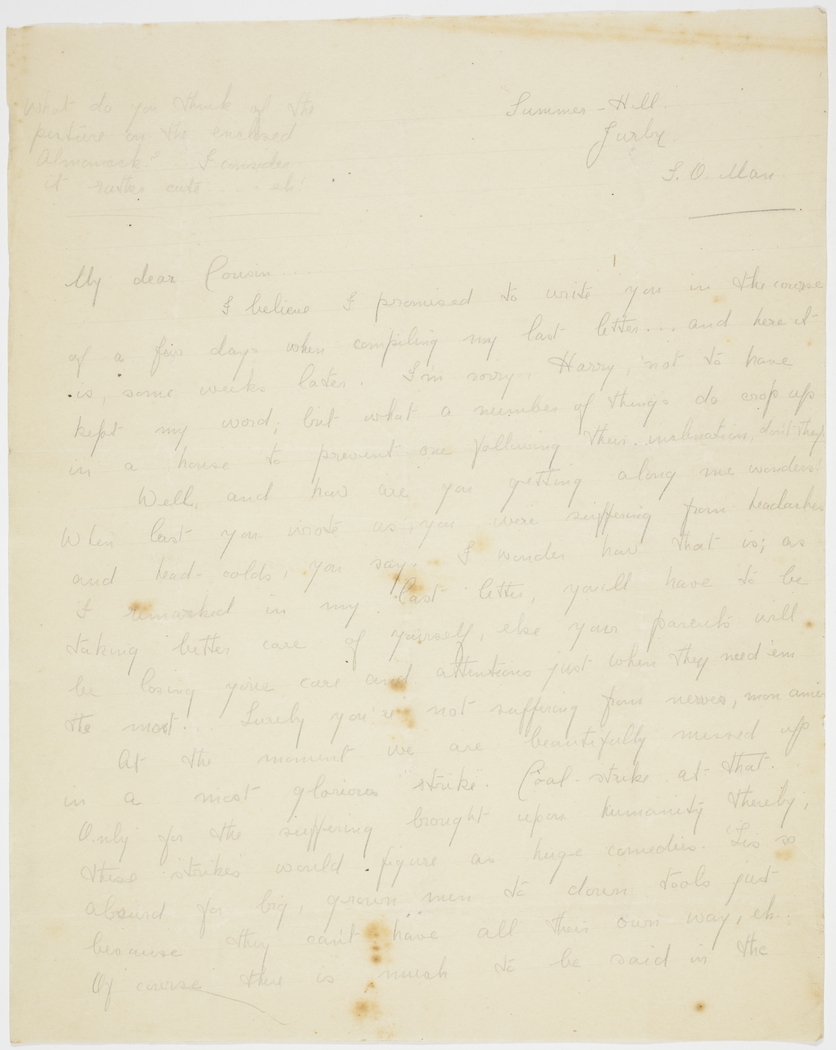 What do you think of the
picture on the enclosed
Almanack? I consider
it rather cute .... eh!
Summer-Hill.
Jurby.
I. O. Man
My dear Cousin
I believe I promised to write you in the course
of a few days when compiling my last letter... and here it
is, some weeks later. I'm sorry, Harry, not to have
kept my word; but what a number of things do crop up
in a house to prevent one following their inclination, don't they.
Well, and how are you getting along me wonders.
When last you wrote as you were suffering from headaches
and head-colds, you say. I wonder how that is; as
I remarked in my last letter, you'll have to be
taking better care of yourself, else your parents will
be losing your care and attentions just when they need 'em
the most... Surely you're not suffering from nerves, mon ami
At the moment we are beautifully messed up
in a most glorious "strike". Coal-strike at that.
Only for the suffering brought upon humanity thereby,
these strikes would figure as huge comedies. 'Tis so
absurd for big, grown men to down tools just
because they can't have all their own way, eh.
Of course there is much to be said in the